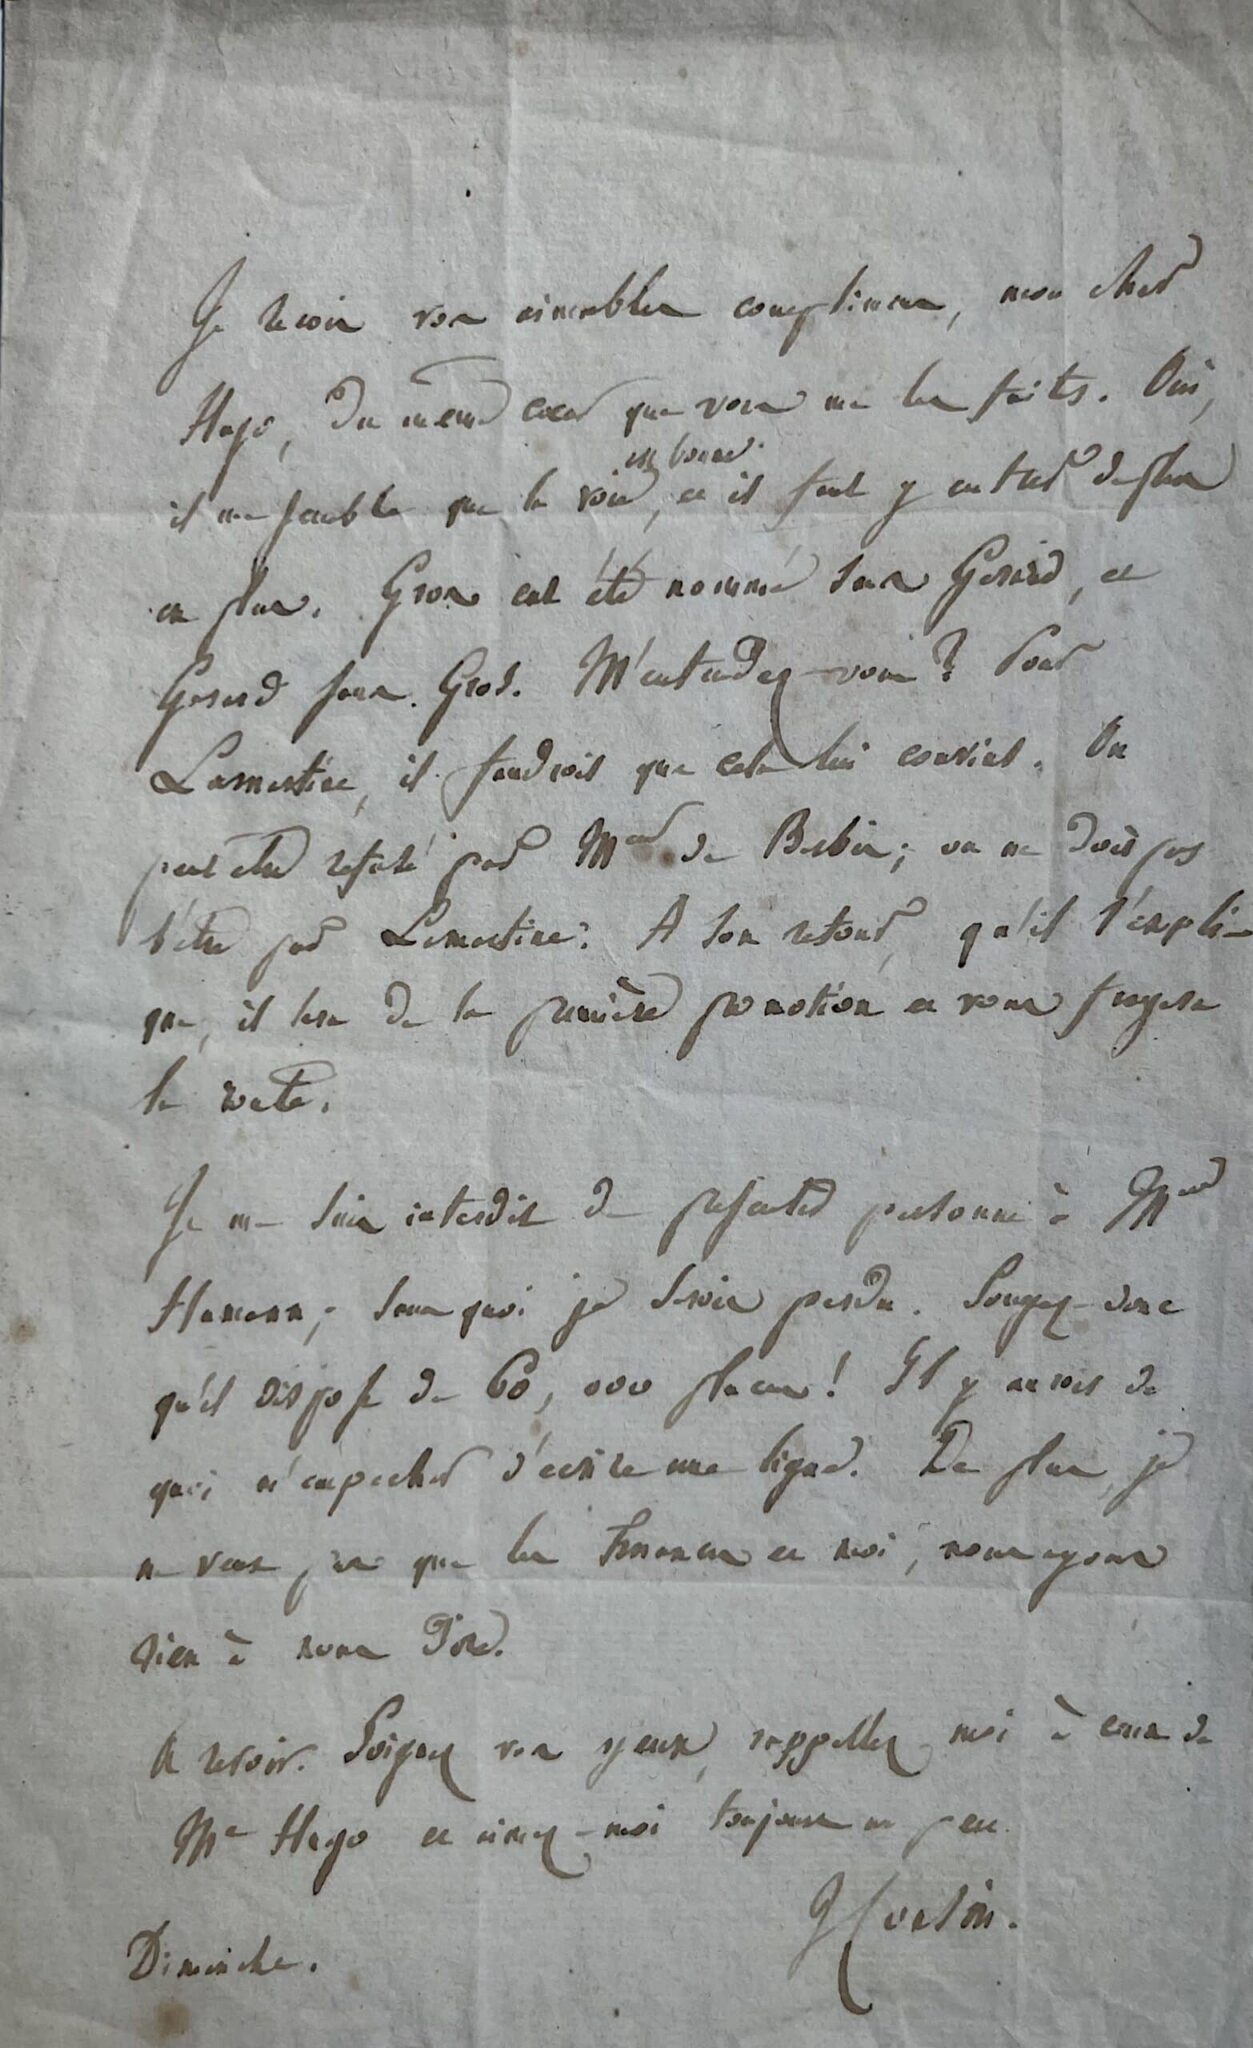 Je reçois vos aimables complimens, mon cher
Hugo, du même cœur que vous me les faites. Oui,
il me semble que la voie est bonne, et il faut y entrer de plus
en plus. Gros eut été nommé sans Gérard, et
Gérard sans Gros. M'entendez-vous ? Pour
Lamartine, il faudroit que cela lui convint. On
peut être refusé par Mr de ; on ne doit pas
l'être par Lamartine. A son retour, qu'il s'expli-
que, il sera de la première promotion et vous
la route.
Je me suis interdit de présenter personne à Mr
Humann, sans quoi je serois perdu. Songez donc
qu'il dispose de 60,000 places ! Il y auroit de
quoi m'empecher d'écrire une ligne. De plus, je
ne veux pas que les finances et moi, nous ayons
rien à nous dire.
A revoir. Soignez vos yeux, rappellez moi à ceux de
Me Hugo et aimez-moi toujours un peu.
Dimanche.